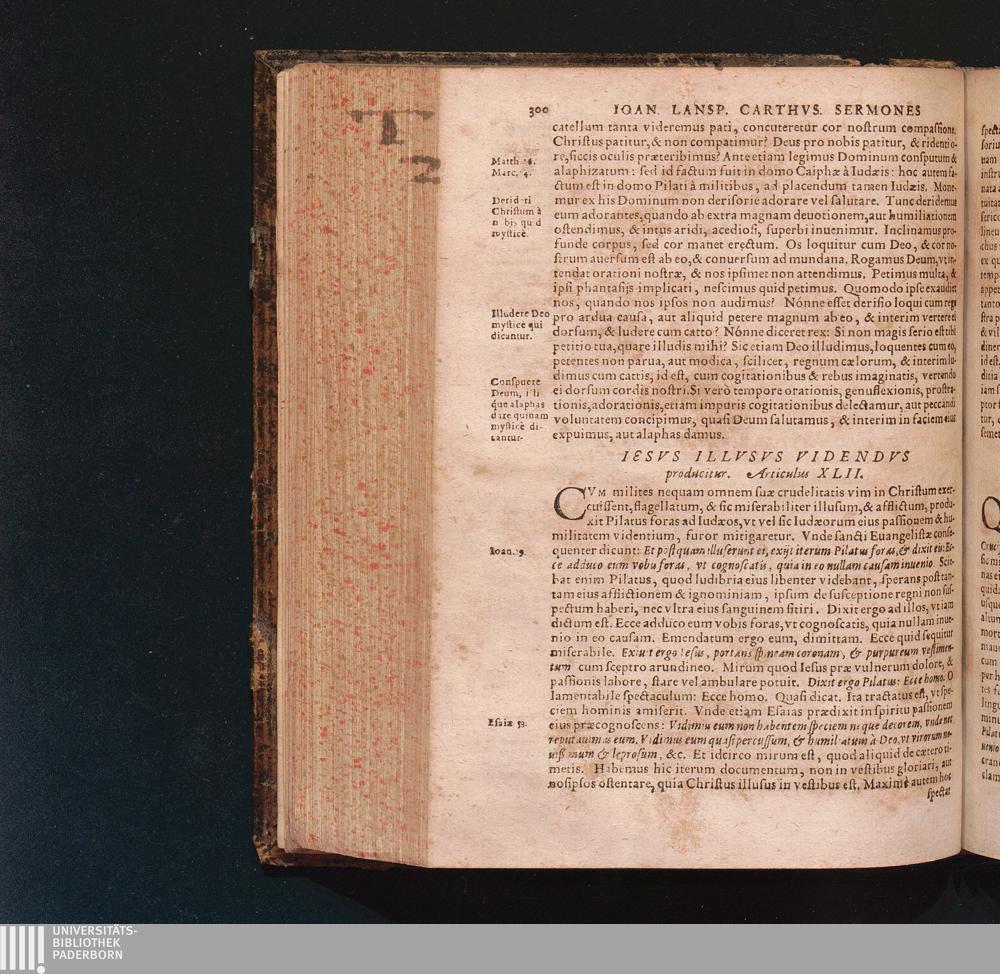 T
2
300 IOAN. LANSP. CARTHVS. SERMONES
catellum tanta videremus pati, concuteretur cor nostrum compassione.
Christus patitur, & non compatimur? Deus pro nobis patitur, & ridentio-
re, siccis oculis præteribimus? Ante etiam legimus Dominum consputum &
alaphizatum: sed id factum fuit in domo Caiphæ à Iudæis: hoc autem fa-
ctum est in domo Pilati à militibus, ad placendum tamen Iudæis. Mone-
mur ex his Dominum non derisorie adorare vel salutare. Tunc deridemus
eum adorantes, quando ab extra magnam deuotionem, aut humiliationem
ostendimus, & intus aridi, acediosi, superbi inuenimur. Inclinamus pro-
funde corpus, sed cor manet erectum. Os loquitur cum Deo, & cor no-
strum auersum est ab eo, & conuersum ad mundana. Rogamus Deum, vt in-
tendat orationi nostræ, & nos ipsimet non attendimus. Petimus multa, &
ipsi phantasijs implicati, nescimus quid petimus. Quomodo ipse exaudiet
nos, quando nos ipsos non audimus? Nónne esset derisio loqui cum rege
pro ardua causa, aut aliquid petere magnum ab eo, & interim vertere ei
dorsum, & ludere cum catto? Nónne diceret rex: Si non magis serio est tibi
petitio tua, quare illudis mihi? Sic etiam Deo illudimus, loquentes cum eo,
petentes non parua, aut modica, scilicet, regnum cælorum, & interim lu-
dimus cum cattis, id est, cum cogitationibus & rebus imaginatis, vertendo
ei dorsum cordis nostri. Si verò tempore orationis, genuflexionis, prostra-
tionis, adorationis, etiam impuris cogitationibus delectamur, aut peccandi
voluntatem concipimus, quasi Deum salutamus, & interim in faciem eius
expuimus, aut alaphas damus.
Matth. 26.
Marc. 14.
Christum à
mysticè.
Illudere Deo
mysticè qui
dicantur.
Conspuere
Deum, illi-
que alaphas
dare quinam
mysticè di-
cantur.
IESVS ILLVSVS VIDENDVS
producitur. Articulus XLII.
CVM milites nequam omnem suæ crudelitatis vim in Christum exer-
cuissent, flagellatum, & sic miserabiliter illusum, & afflictum, produ-
xit Pilatus foras ad Iudæos, vt vel sic Iudæorum eius passionem & hu-
militatem videntium, furor mitigaretur. Vnde sancti Euangelistæ conse-
quenter dicunt: Et postquam illuserunt ei, exijt iterum Pilatus foras, & dixit eis: Ec-
ce adduco eum vobis foras, vt cognoscatis, quia in eo nullam causam inuenio. Scie-
bat enim Pilatus, quod ludibria eius libenter videbant, sperans post tan-
tam eius afflictionem & ignominiam, ipsum de susceptione regni non sus-
pectum haberi, nec vltra eius sanguinem sitiri. Dixit ergo ad illos, vt iam
dictum est. Ecce adduco eum vobis foras, vt cognoscatis, quia nullam inue-
nio in eo causam. Emendatum ergo eum, dimittam. Ecce quid sequitur
miserabile. Exiuit ergo Iesus, portans spineam coronam, & purpureum vestimen-
tum cum sceptro arundineo. Mirum quod Iesus præ vulnerum dolore, &
passionis labore, stare vel ambulare potuit. Dixit ergo Pilatus: Ecce homo. O
lamentabile spectaculum: Ecce homo. Quasi dicat. Ita tractatus est, vt spe-
ciem hominis amiserit. Vnde etiam Esaias prædixit in spiritu passionem
eius præcognoscens: Vidimus eum non habentem speciem neque decorem, vnde nec
reputauimus eum. Vidimus eum quasi percussum, & humiliatum à Deo, vt virorum no-
uissimum & leprosum, &c. Et idcirco mirum est, quod aliquid de cætero ti-
metis. Habemus hic iterum documentum, non in vestibus gloriari, aut
nosipsos ostentare, quia Christus illusus in vestibus est. Maximè autem hoc
spectat
Ioan. 19.
Esaiæ 53.
UNIVERSITÄTS-
BIBLIOTHEK
PADERBORN